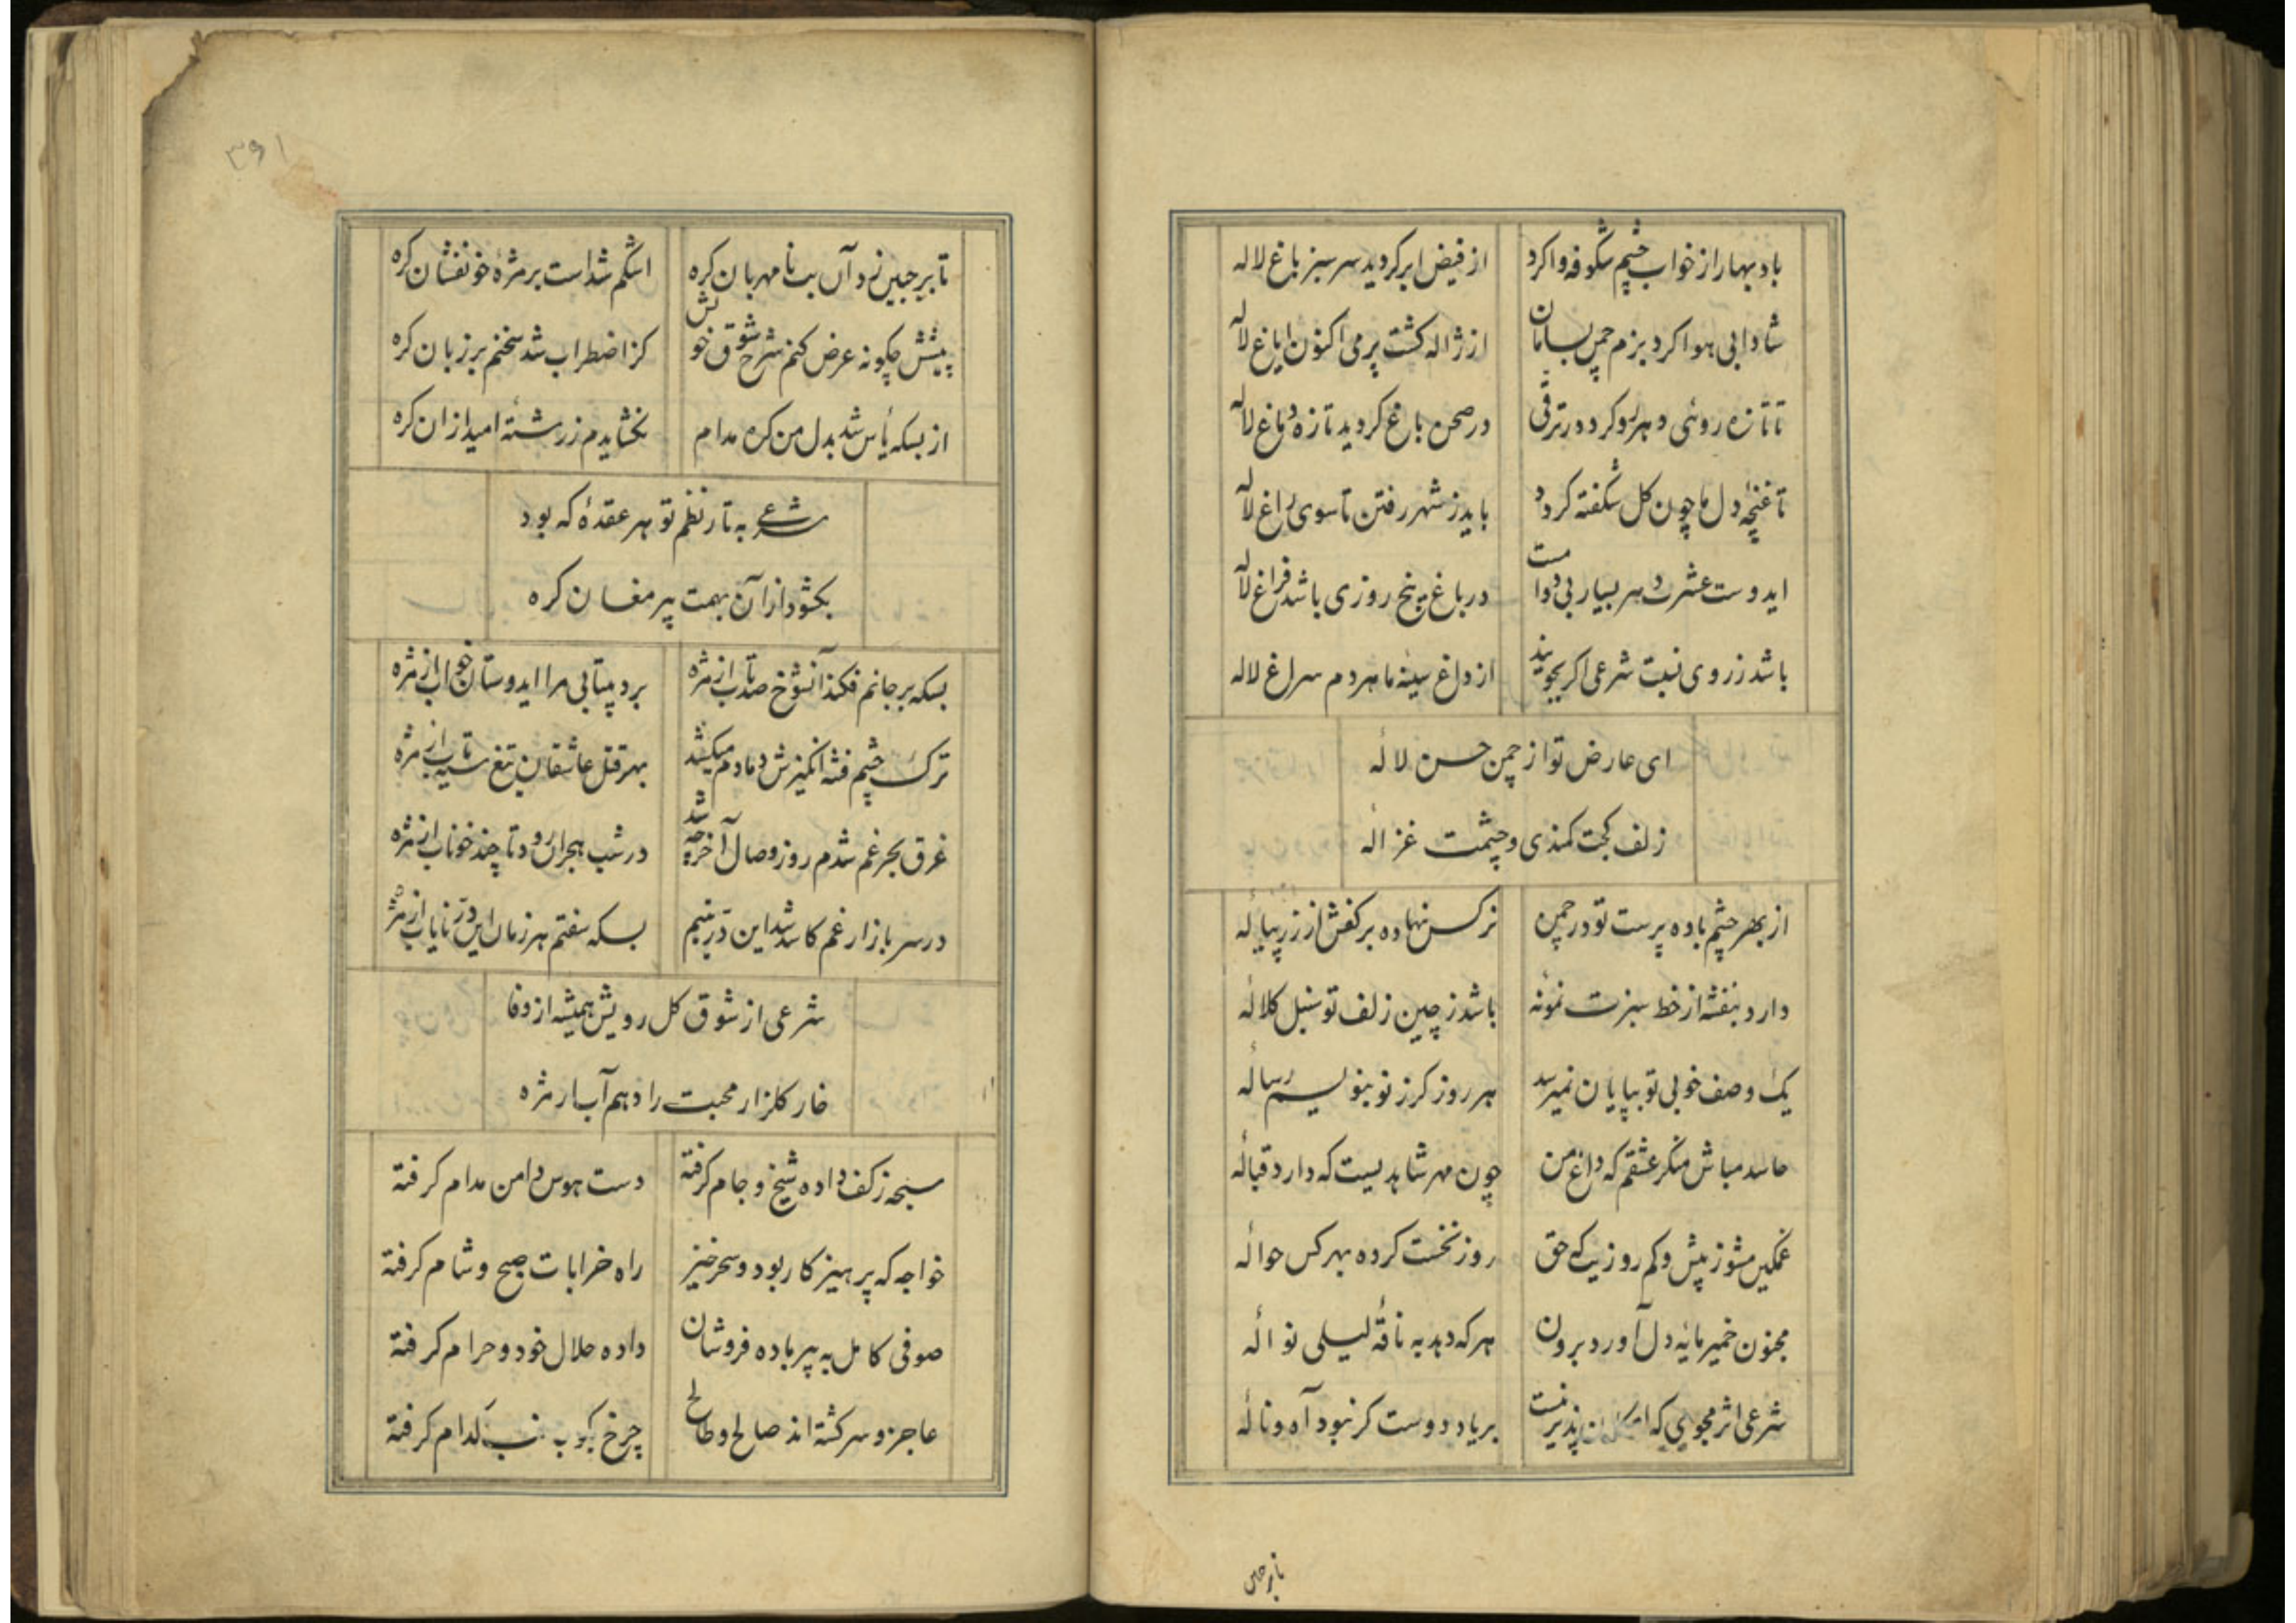 باد بهار از خواب چشم شکوفه وا کرد از فیض ابر کردید سر سبز باغ لاله
شادابی هوا کرد بزم چمن بسامان از ژاله کشت پر می اکنون ایاغ لاله
تا تازه روئی دهر رو کرده در ترقی در صحن باغ کردید تازه دماغ لاله
تا غنچهٔ دل ما چون کل شکفته کردد باید ز شهر رفتن تا سوی راغ لاله
ایدوست عشرت دهر بسیار بی دوامست در باغ پنج روزی باشد فراغ لاله
باشد ز روی نسبت شرعی اکر بجویند از داغ سینهٔ ما هر دم سراغ لاله
ای عارض تو از چمن حسن لالهٔ
زلف کجت کمندی و چشمت غزالهٔ
از بهر چشم باده پرست تو در چمن نرکس نهاده بر کفش از زر پیالهٔ
دارد بنفشه از خط سبزت نمونهٔ باشد ز چین زلف تو سنبل کلالهٔ
یک وصف خوبی تو بپایان نمیرسد هر روز کر ز نو بنویسم رسالهٔ
حاسد مباش منکر عشقم که داغ من چون مهر شاهدیست که دارد قبالهٔ
غمکین مشو ز پیش و کم روزیت که حق روز نخست کرده بهر کس حوالهٔ
مجنون خمیر مایهٔ دل آورد برون هر که دهد به ناقهٔ لیلی نوالهٔ
شرعی اثر مجوی که امکان پذیر نیست بر یاد دوست کر نبود آه و نالهٔ
تا بر جبین
۳۹۱
تا بر جبین زد آن بت نا مهربان کره اشکم شداست بر مژهٔ خونفشان کره
پیشش چکونه عرض کنم شرح شوق خویش کز اضطراب شد سخنم بر زبان کره
از بسکه یأس شد بدل من کره مدام نکشایدم ز رشتهٔ امید از ان کره
شرعی به تار نظم تو هر عقدهٔ که بود
بکشود از آن بهمت پیر مغان کره
بسکه بر جانم فکند آنشوخ صد تاب از مژه برد بیتابی مرا ایدوستان خواب از مژه
ترک چشم فتنه انکیزش دمادم میکشد بهر قتل عاشقان تیغ سیه تاب از مژه
غرق بحر غم شدم روز وصال آخر چه شد در شب هجران رود تا چند خوناب از مژه
در سر بازار غم کاسد شد این در یتیم بسکه سفتم هر زمان این در نایاب از مژه
شرعی از شوق کل رویش همیشه از وفا
خار کلزار محبت را دهم آب از مژه
سبحه ز کف داده شیخ و جام کرفته دست هوس دامن مدام کرفته
خواجه که پرهیز کار بود و سحر خیز راه خرابات صبح و شام کرفته
صوفی کامل به پیر باده فروشان داده حلال خود و حرام کرفته
عاجز و سرکشته اند صالح و طالح چرخ کبود کدام کرفته